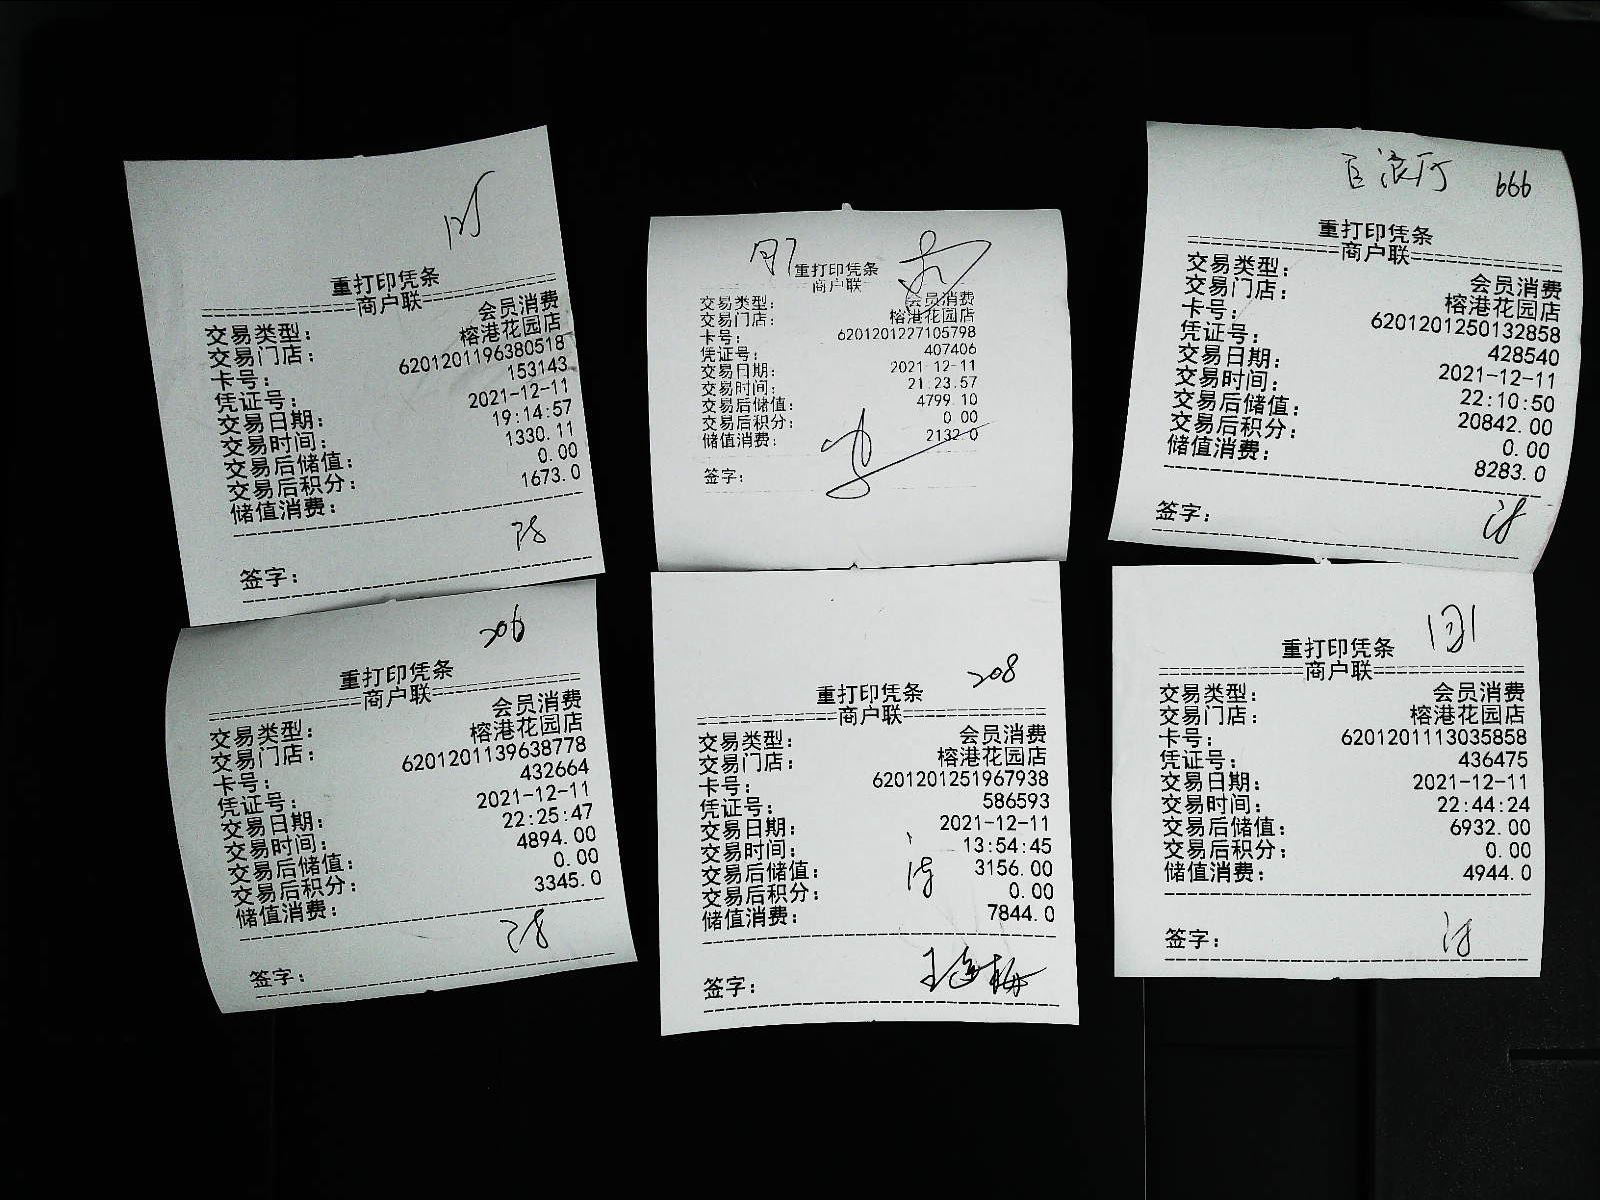 125
重打印凭条
==========商户联==========
交易类型： 会员消费
交易门店： 榕港花园店
卡号： 6201201196380518
凭证号： 153143
交易日期： 2021-12-11
交易时间： 19:14:57
交易后储值： 1330.11
交易后积分： 0.00
储值消费： 1673.0
签字：
重打印凭条
商户联
交易类型： 会员消费
交易门店： 榕港花园店
卡号： 6201201227105798
凭证号： 407406
交易日期： 2021-12-11
交易时间： 21:23:57
交易后储值： 4799.10
交易后积分： 0.00
储值消费： 2132.0
签字：
666
重打印凭条
==========商户联==========
交易类型： 会员消费
交易门店： 榕港花园店
卡号： 6201201250132858
凭证号： 428540
交易日期： 2021-12-11
交易时间： 22:10:50
交易后储值： 20842.00
交易后积分： 0.00
储值消费： 8283.0
签字：
206
重打印凭条
==========商户联==========
交易类型： 会员消费
交易门店： 榕港花园店
卡号： 6201201139638778
凭证号： 432664
交易日期： 2021-12-11
交易时间： 22:25:47
交易后储值： 4894.00
交易后积分： 0.00
储值消费： 3345.0
签字：
208
重打印凭条
==========商户联==========
交易类型： 会员消费
交易门店： 榕港花园店
卡号： 6201201251967938
凭证号： 586593
交易日期： 2021-12-11
交易时间： 13:54:45
交易后储值： 3156.00
交易后积分： 0.00
储值消费： 7844.0
签字：
重打印凭条
==========商户联==========
交易类型： 会员消费
交易门店： 榕港花园店
卡号： 6201201113035858
凭证号： 436475
交易日期： 2021-12-11
交易时间： 22:44:24
交易后储值： 6932.00
交易后积分： 0.00
储值消费： 4944.0
签字：